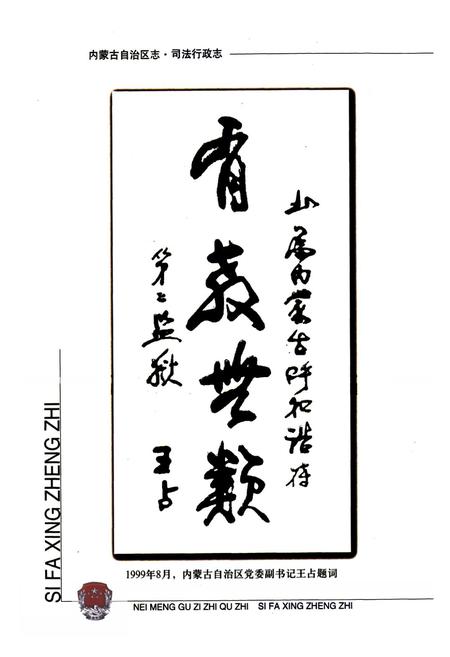 内蒙古自治区志·司法行政志
书为内蒙古呼和浩特
有教无类
第二监狱
王占
1999年8月，内蒙古自治区党委副书记王占题词
SI FA XING ZHENG ZHI
NEI MENG GU ZI ZHI QU ZHI SI FA XING ZHENG ZHI